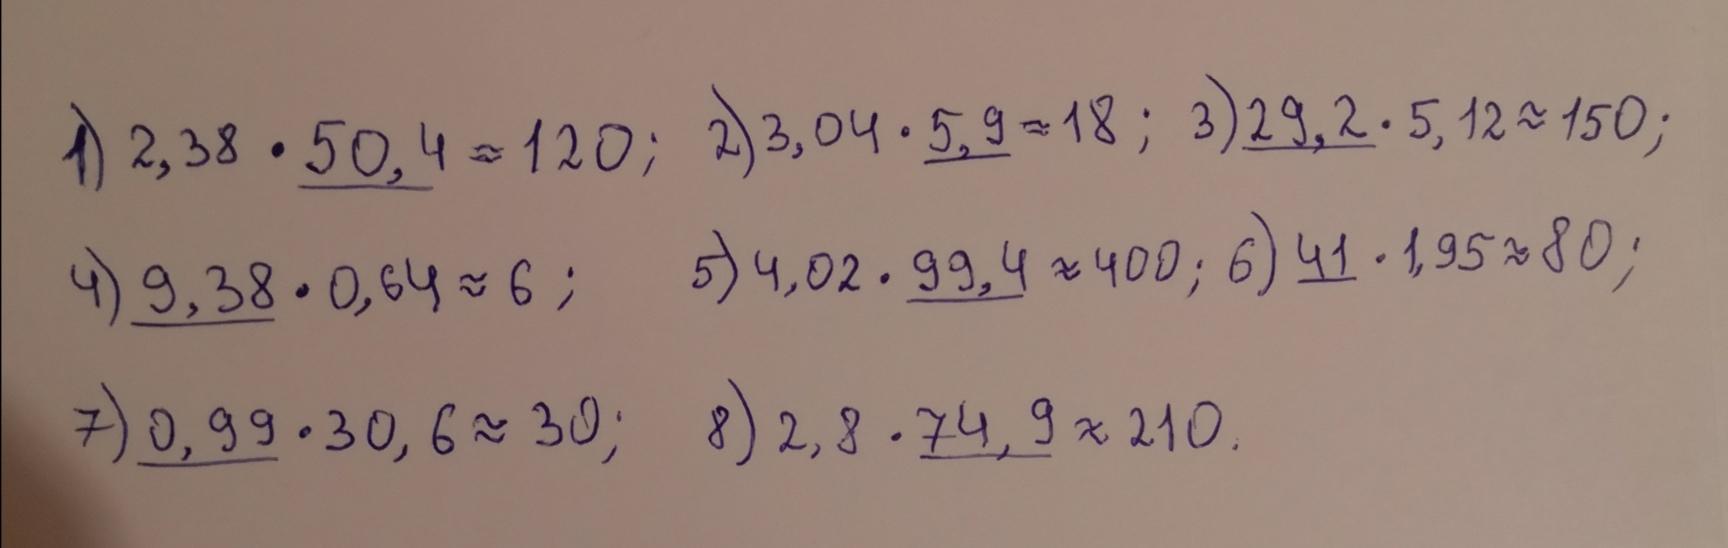 1) 2,38 · 50,4 ≈ 120; 2) 3,04 · 5,9 ≈ 18; 3) 29,2 · 5,12 ≈ 150;
4) 9,38 · 0,64 ≈ 6; 5) 4,02 · 99,4 ≈ 400; 6) 41 · 1,95 ≈ 80;
7) 0,99 · 30,6 ≈ 30; 8) 2,8 · 74,9 ≈ 210.